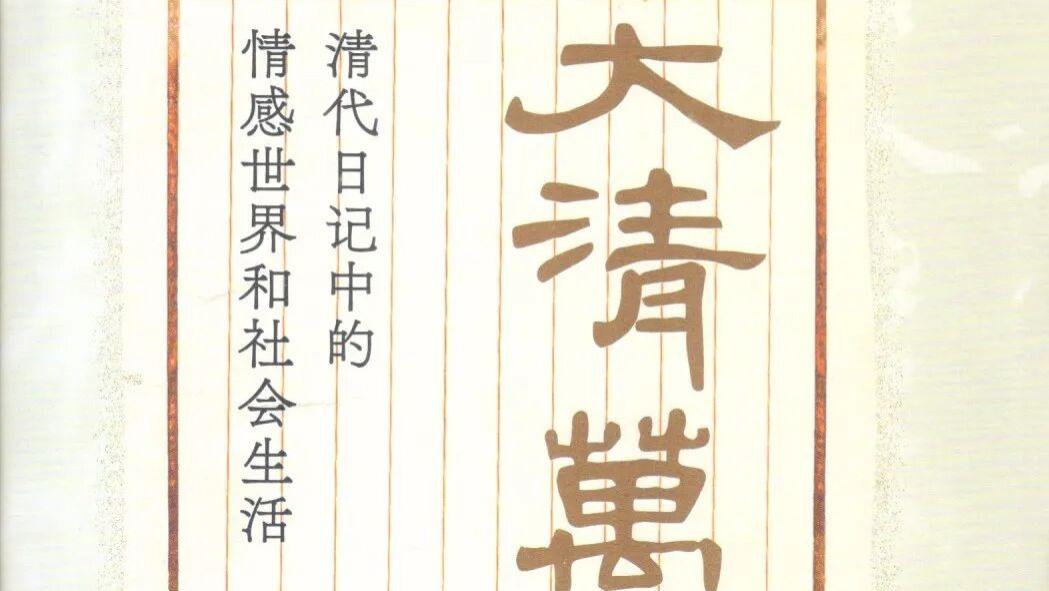 大清萬
清代日记中的
情感世界和社会生活